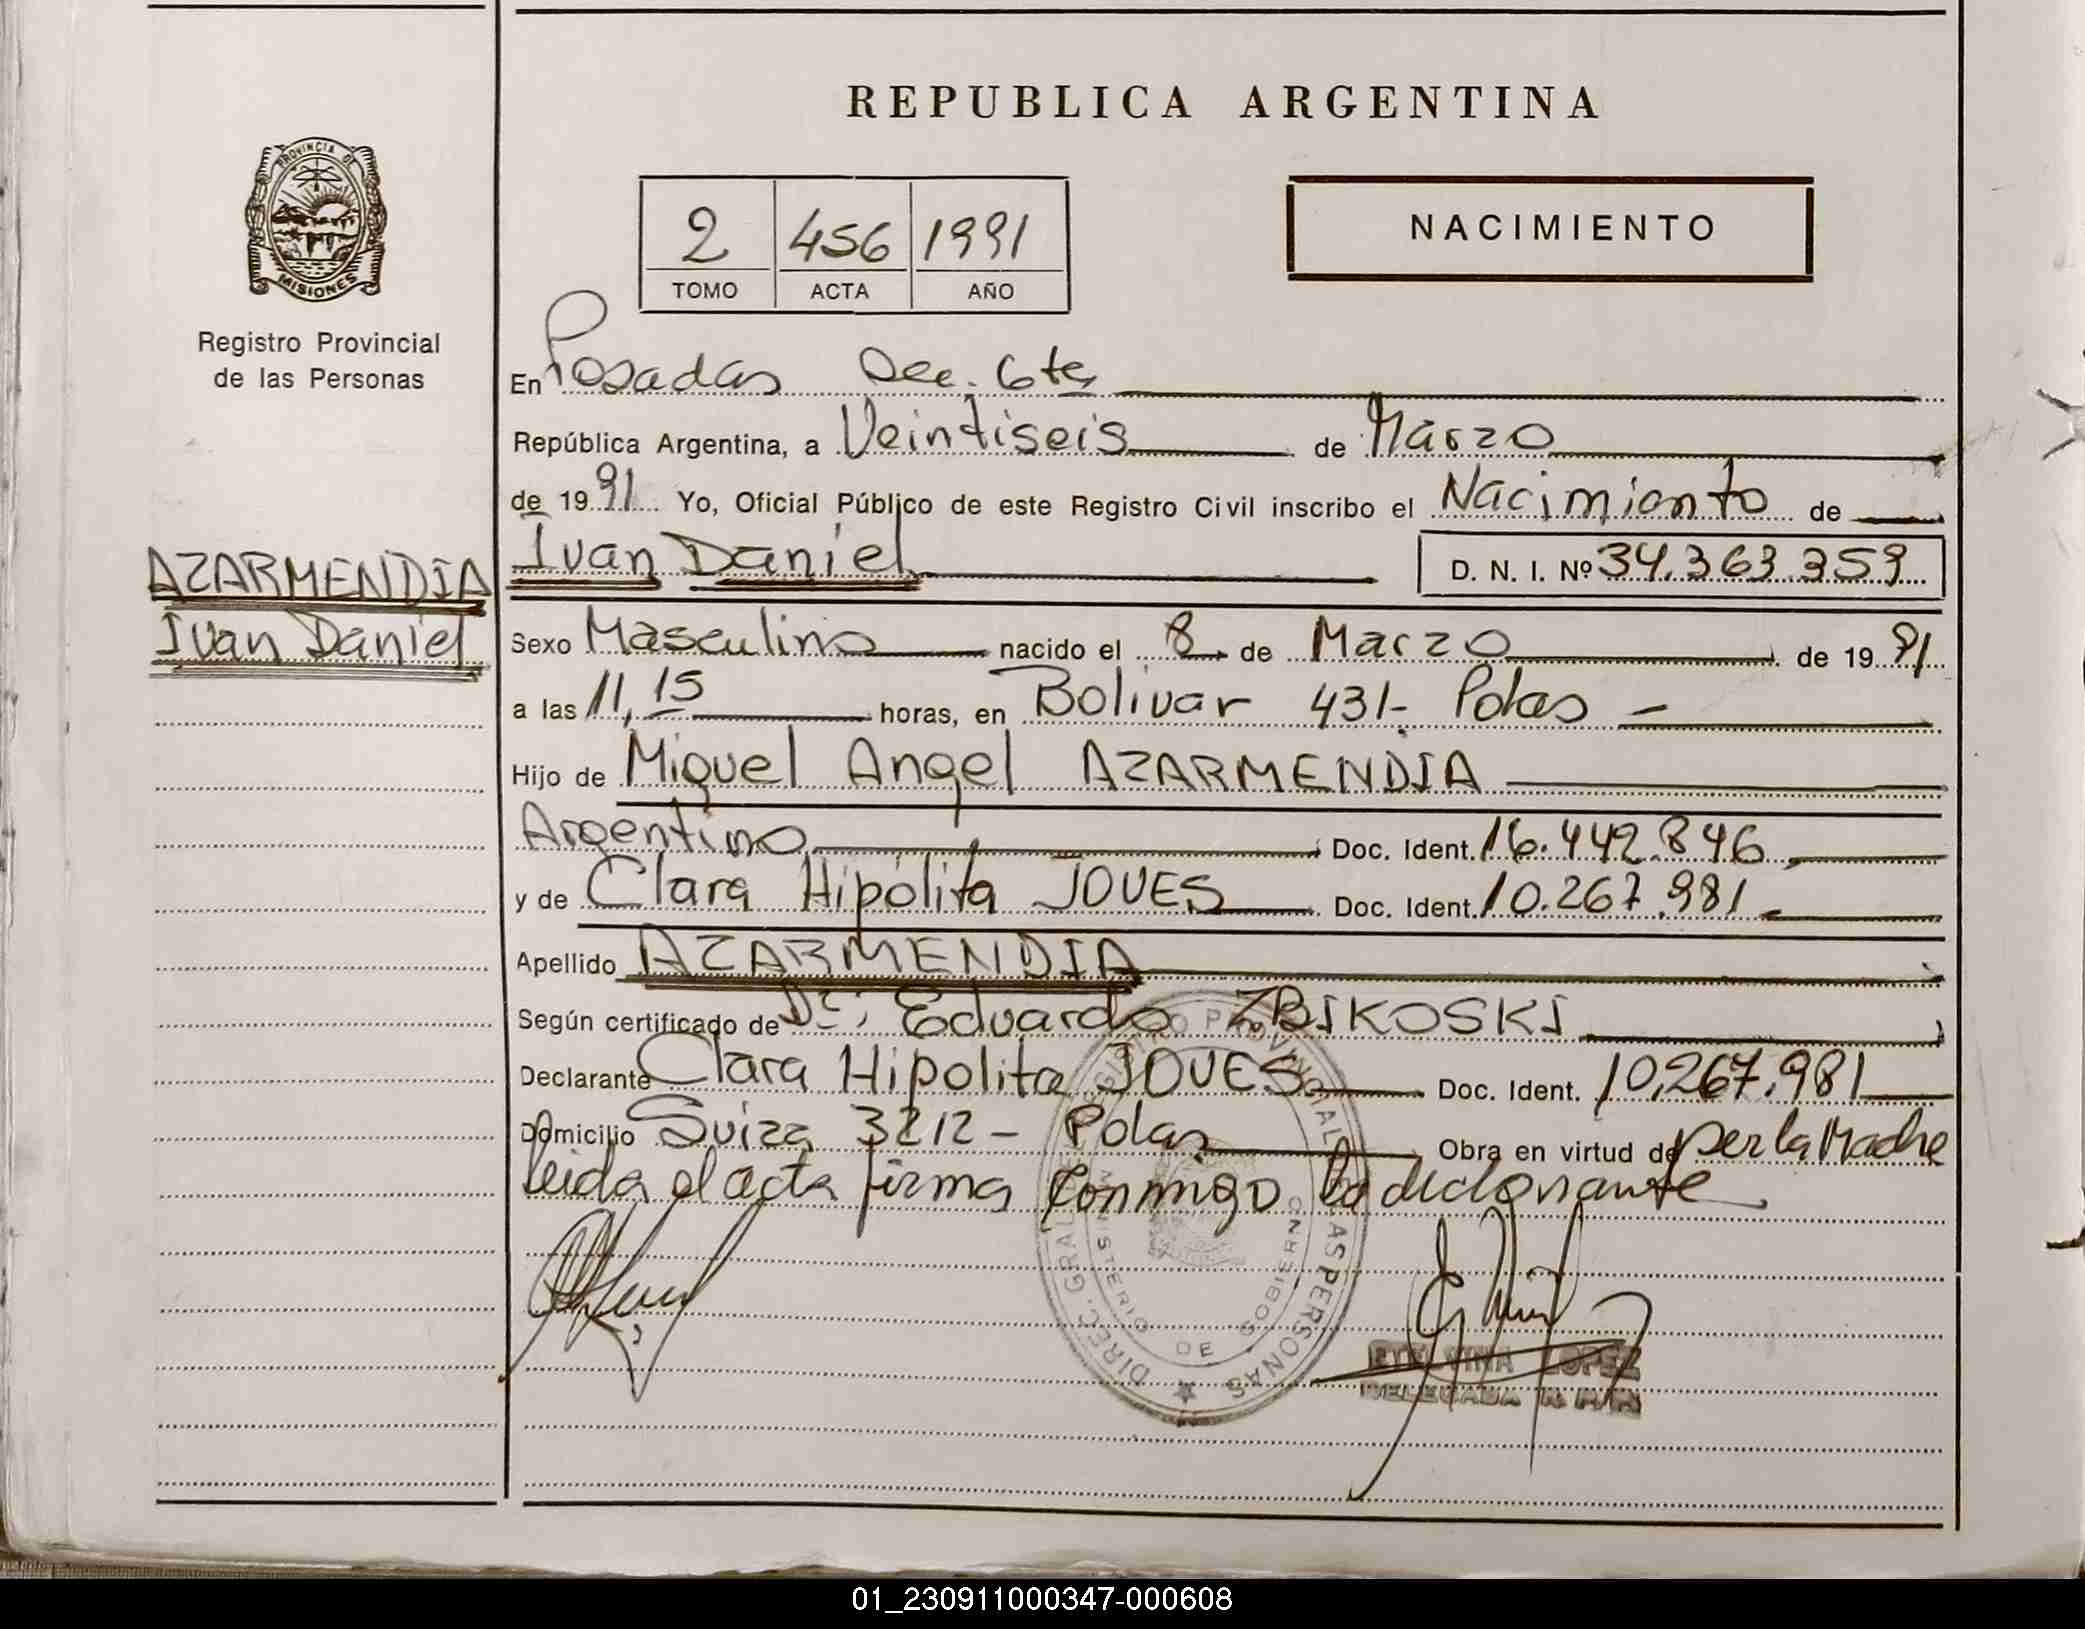 REPUBLICA ARGENTINA
PROVINCIA DE
MISIONES
Registro Provincial
de las Personas
2 456 1991
TOMO ACTA AÑO
NACIMIENTO
En Posadas Sec. 6ta
República Argentina, a Veintiseis de Marzo
de 1991 Yo, Oficial Público de este Registro Civil inscribo el Nacimiento de
AZARMENDIA
Ivan Daniel
Ivan Daniel D. N. I. Nº 34.363.359
Sexo Masculino nacido el 8 de Marzo de 1991
a las 11,15 horas, en Bolivar 431- Pdas -
Hijo de Miguel Angel AZARMENDIA
Argentino Doc. Ident. 16.442.846
y de Clara Hipólita JOVES Doc. Ident. 10.267.981
Apellido AZARMENDIA
Según certificado de Dr; Eduardo ZBIKOSKI
Declarante Clara Hipolita JOVES Doc. Ident. 10.267.981
Domicilio Suiza 3212 - Pdas Obra en virtud de ser la Madre
leida el acta firma conmigo la declarante
DIREC. GRAL. REGISTRO PROVINCIAL DE LAS PERSONAS
MINISTERIO DE GOBIERNO
ETELVINA LOPEZ
DELEGADA
01_230911000347-000608